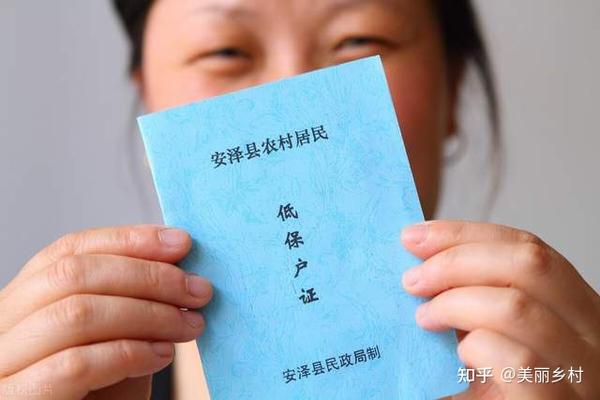 安泽县农村居民
低保户证
安泽县民政局制
知乎 @美丽乡村
版权图片